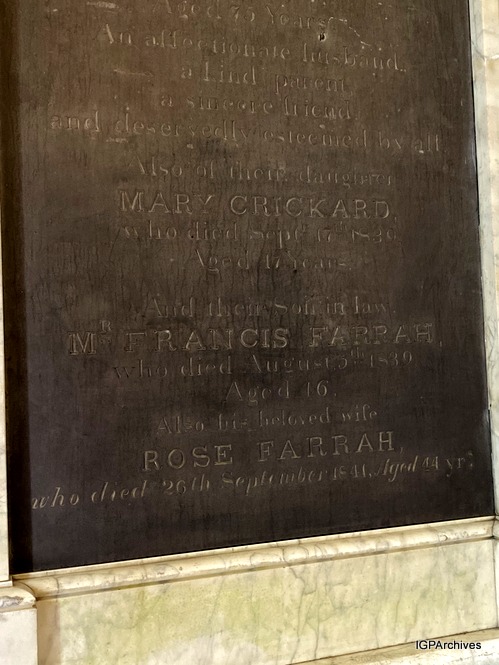 Aged 75 Years
An affectionate husband,
a kind parent
a sincere friend
and deservedly esteemed by all.
Also of their daughter
MARY CRICKARD,
who died Sept. 17th
Aged 17 Years.
And their Son in law
MR FRANCIS FARRAH,
who died August 5th 1839
Aged 46,
Also his beloved wife
ROSE FARRAH,
who died 26th September 1841, Aged 44 yrs
IGPArchives